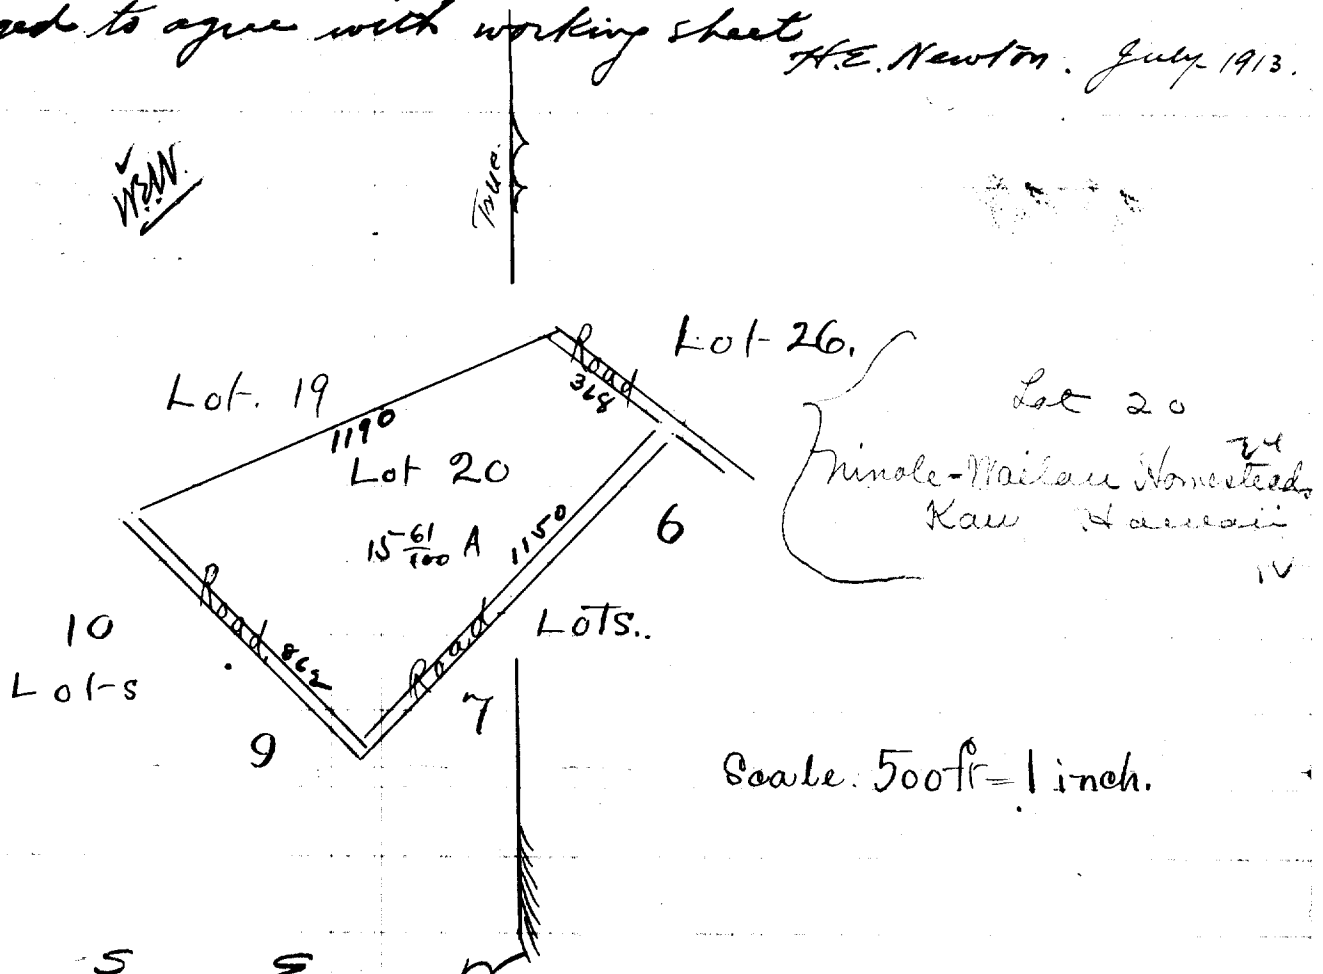 to agree with working sheet
H.E. Newton. July 1913.
True.
Lot 26.
Road
368
Lot. 19
1190
Lot 20
15 61/100 A
1150
Road
6
Lot 20
Ninole-Wailau Homesteads
Kau Hawaii
Road
862
10
Lots
9
7
LOTS..
Scale. 500ft=1 inch.